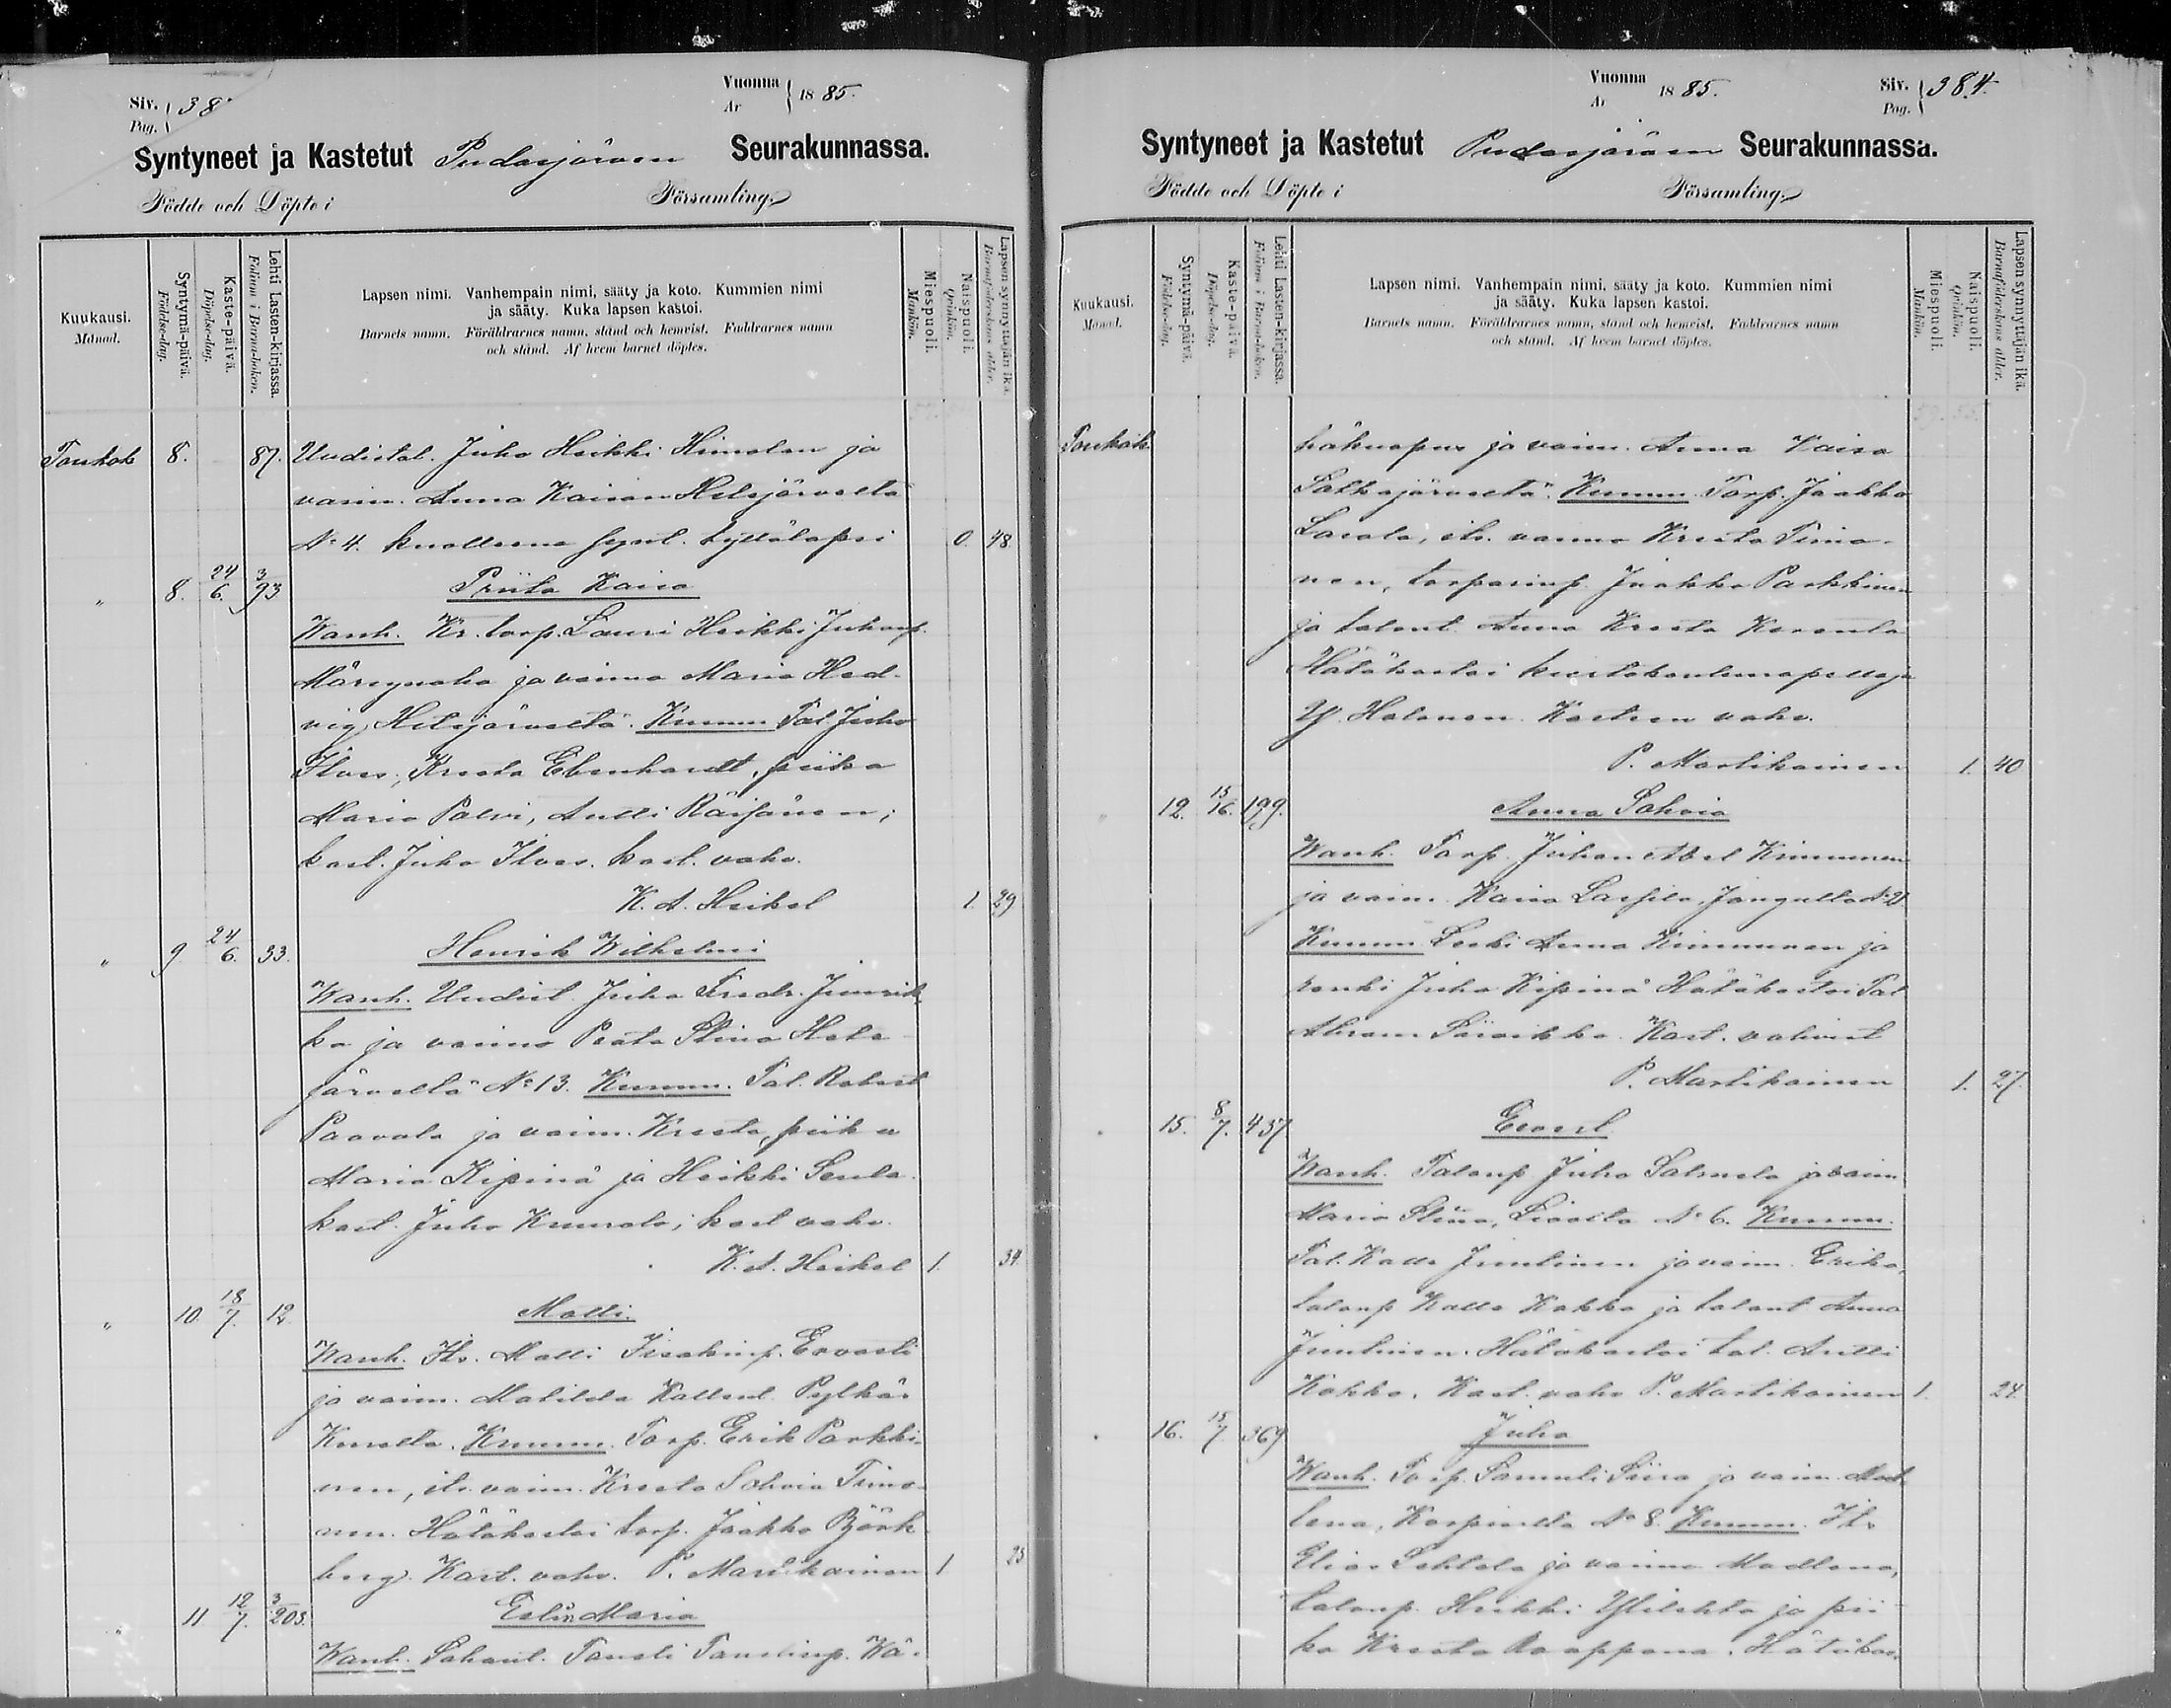 Siv. 38
Pag.
Vuonna 1885.
Ar
Syntyneet ja Kastetut Pudasjärven Seurakunnassa.
Födde och Döpte i Församling.
Kuukausi.
Månad.
Syntymä-päivä.
Födelse-dag.
Kaste-päivä.
Döpelse-dag.
Lehti Lasten-kirjassa.
Folium i Barna-boken.
Lapsen nimi. Vanhempain nimi, sääty ja koto. Kummien nimi
ja sääty. Kuka lapsen kastoi.
Barnets namn. Föräldrarnes namn, stånd och hemvist. Faddrarnes namn
och stånd. Af hvem barnet döptes.
Miespuoli.
Mankön.
Naispuoli.
Qvinkön.
Lapsen synnyttäjän ikä.
Barnaföderskans ålder.
Toukok 8. 87. Uudistal. Juho Heikki Himolan ja
vaim. Anna Kaisan Hetejärveltä
No 4. kuolleena synt. tyttölapsi 0. 48.
" 8. 24/6. 3/93 Priita Kaisa
Wanh. Kr. torp. Lauri Heikki Juhonp.
ja vaimo Maria Hed-
vig, Hetejärveltä. Kumm. Tal. Juho
Ilves, Kreeta Ebenhardt, piika
Maria Palvi, Antti Räisänen;
kast. Juho Ilves. kast. vahv.
K. A. Heikel 1. 29
" 9 24/6. 33. Henrik Wilhelmi
Wanh. Uudist. Juho Fredr. Jurvik
ka ja vaimo Peata Stina Hete-
järveltä No 13. Kumm. Tal. Robert
Paavola ja vaim. Kreeta, piika
Maria Kipinä ja Heikki
kast. Juho kast vahv.
K. A. Heikel 1. 34.
" 10. 18/7. 12. Matti.
Wanh. Its. Matti Iisakinp. Ervasti
ja vaim. Matilda Kallent. Pylkäs
Kumm. Torp. Erik Parkki-
nen, its. vaim. Kreeta Sohvia Timo-
nen. Hätäkastoi torp. Jaakko Björk
berg. Kast. vahv. P. Martikainen 1 25
" 11 12/7. 3/203. Eelin Maria
Wanh. Taneli Tanelinp. Kä-
Vuonna 1885.
Ar
Siv. 384.
Pag.
Syntyneet ja Kastetut Pudasjärven Seurakunnassa.
Födde och Döpte i Församling.
Kuukausi.
Månad.
Syntymä-päivä.
Födelse-dag.
Kaste-päivä.
Döpelse-dag.
Lehti Lasten-kirjassa.
Folium i Barna-boken.
Lapsen nimi. Vanhempain nimi, sääty ja koto. Kummien nimi
ja sääty. Kuka lapsen kastoi.
Barnets namn. Föräldrarnes namn, stånd och hemvist. Faddrarnes namn
och stånd. Af hvem barnet döptes.
Miespuoli.
Mankön.
Naispuoli.
Qvinkön.
Lapsen synnyttäjän ikä.
Barnaföderskans ålder.
Toukok. ja vaim. Anna Kaisa
Kumm. Torp. Jaakko
its. vaimo Kreeta Timo-
nen, torparinp. Jaakko Parkkinen
ja talont. Anna Kreeta
Hätäkastoi kiertokoulunopettaja
Y. Halonen. Kasteen vahv.
P. Martikainen 1. 40
" 12. 15/16. 199. Anna Sohvia
Wanh. Torp. Juhan Abel Kinnunen
ja vaim. Kaisa Jongulta
Kumm. Leski Anna Kinnunen ja
renki Juho Kipinä Hätäkastoi Tal
Abram Särkikko. Kast. vahvist
P. Martikainen 1. 27.
" 15. 8/7. 437 Eevert
Wanh. Talonp Juho Salmela ja vaim
Maria Stiina, No 6. Kumm.
Tal. Kalle Juntinen ja vaim. Erika,
talonp Kalle Kokko ja talont Anna
Juntinen. Hätäkastoi tal. Antti
Kokko. Kast. vahv P. Martikainen 1. 24.
" 16. 15/7. 369 Juho
Wanh. Torp. Samuli Siira ja vaim. Mad
lena, Korpiselta No 8. Kumm. Its
Elias Lehtola ja vaimo Madlena,
talonp. Heikki Ylilehto ja pii
ka Kreeta Hätäkas.